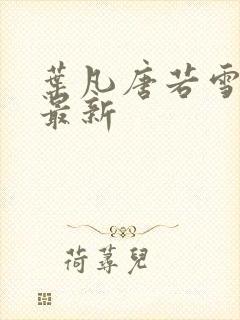 葉凡唐若雪
最新
荷蕁兒